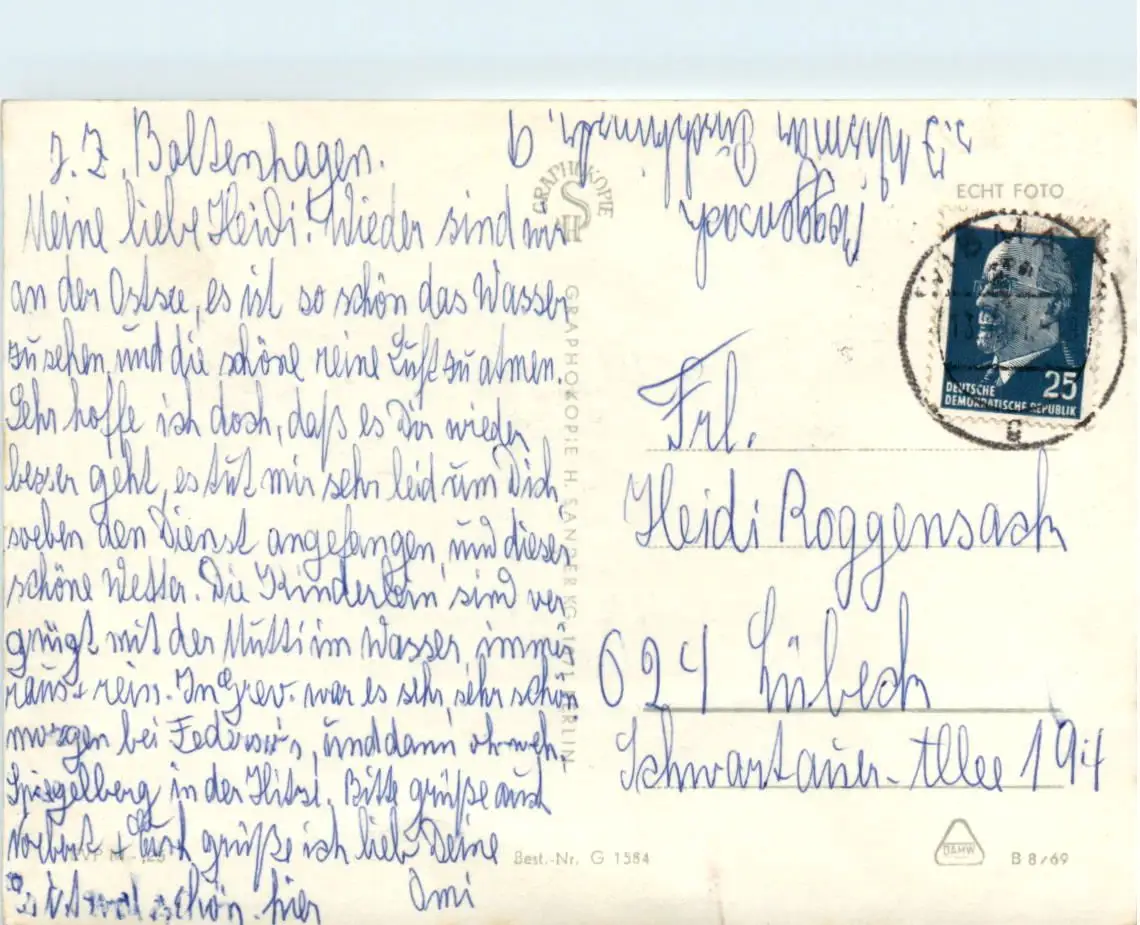 z. Z. Boltenhagen.
Meine liebe Heidi! Wieder sind wir
an der Ostsee, es ist so schön das Wasser
zu sehen und die schöne reine Luft zu atmen.
Sehr hoffe ich doch, daß es Dir wieder
besser geht, es tut mir sehr leid um Dich,
soeben den Dienst angefangen, und dieses
schöne Wetter. Die Kinderlein sind ver
gnügt mit der Mutti im Wasser, immer
raus + rein. In Grev. war es sehr, sehr schön
morgen bei und dann oh weh
Spiegelberg in der Hitze. Bitte grüße auch
Norbert + Euch grüße ich lieb Deine
Omi
Es ist schön hier
Roggensack
ECHT FOTO
GRAPHOKOPIE
H S
GRAPHOKOPIE H. SANDER KG, 1071 BERLIN
DEUTSCHE
DEMOKRATISCHE REPUBLIK
25
Frl.
Heidi Roggensack
624 Lübeck
Schwartauer-Allee 194
Best.-Nr. G 1584
DAMW
B 8/69